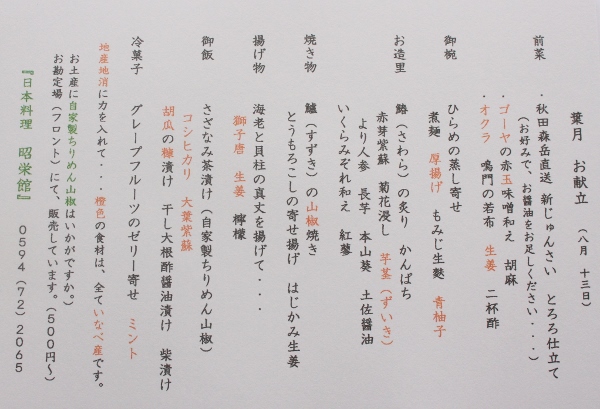 葉月　お献立　（八月　十三日）
前菜　・秋田森岳直送　新じゅんさい　とろろ仕立て
（お好みで、お醤油をお足しください・・・・）
・ゴーヤの赤玉味噌和え　胡麻
・オクラ　鳴門の若布　生姜　二杯酢
御椀　ひらめの蒸し寄せ
煮麺　厚揚げ　もみじ生麩　青柚子
お造里　鰆（さわら）の炙り　かんぱち
赤芽紫蘇　菊花浸し　芋茎（ずいき）
より人参　長芋　本山葵　土佐醤油
いくらみぞれ和え　紅蓼
焼き物　鱸（すずき）の山椒焼き
とうもろこしの寄せ揚げ　はじかみ生姜
揚げ物　海老と貝柱の真丈を揚げて・・・・
獅子唐　生姜　檸檬
御飯　さざなみ茶漬け（自家製ちりめん山椒）
コシヒカリ　大葉紫蘇
胡瓜の糠漬け　干し大根酢醤油漬け　柴漬け
冷菓子　グレープフルーツのゼリー寄せ　ミント
地産地消に力を入れて・・・橙色の食材は、全ていなべ産です。
お土産に自家製ちりめん山椒はいかがですか。
お勘定場（フロント）にて、販売しています。（５００円～）
『日本料理　昭栄館』　０５９４（７２）２０６５